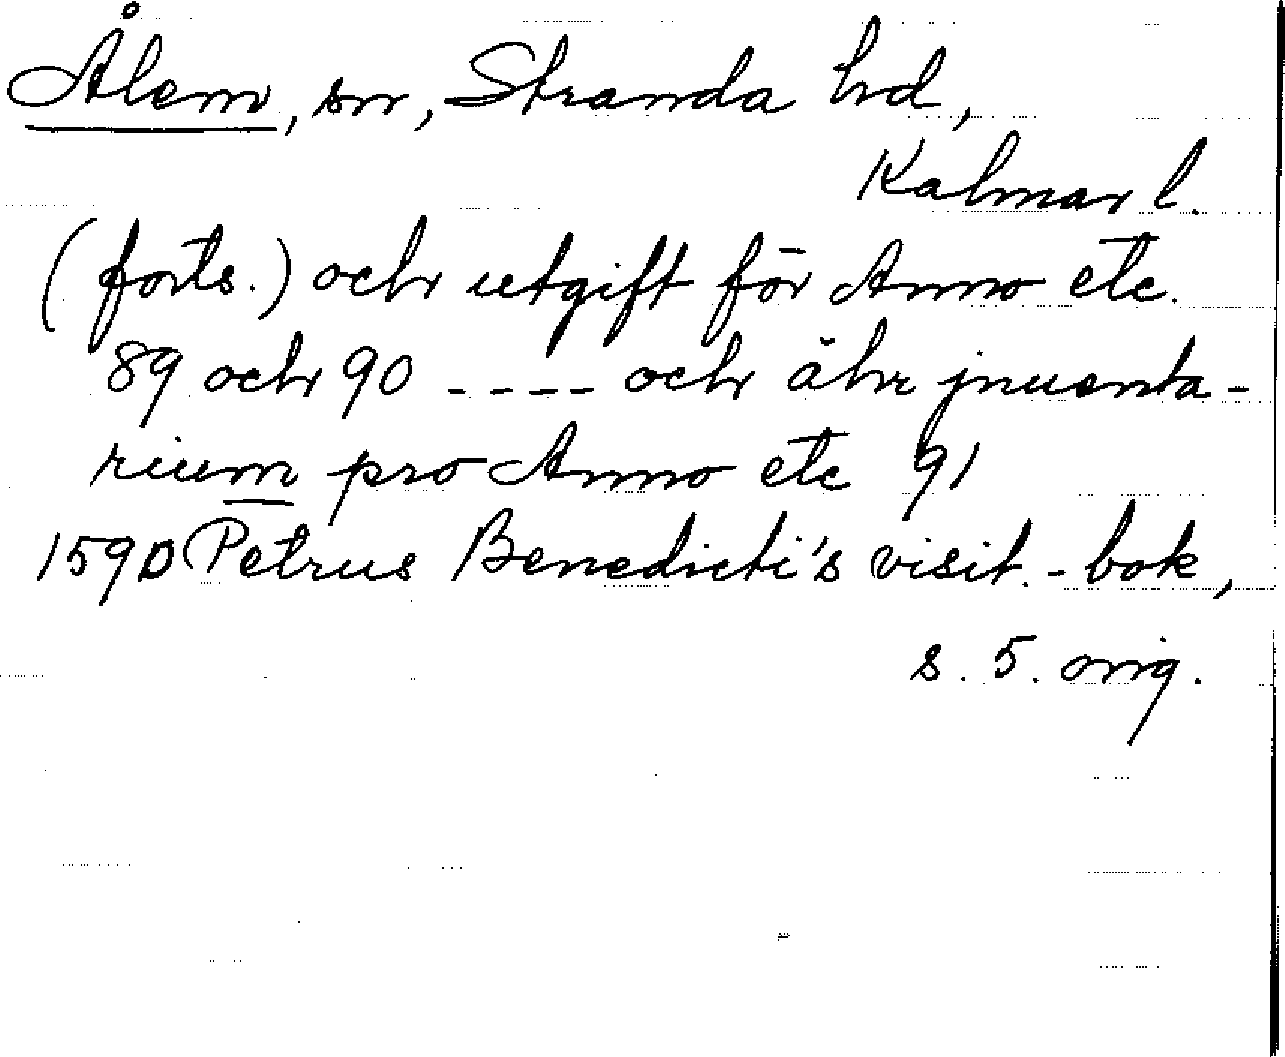 Ålem, sn, Stranda hd,
Kalmar l.
(forts.) och utgift för Anno etc.
89 och 90 ---- och ähr jnuenta-
rium pro Anno etc 91
1590 Petrus Benedicti's visit.-bok,
s. 5. orig.